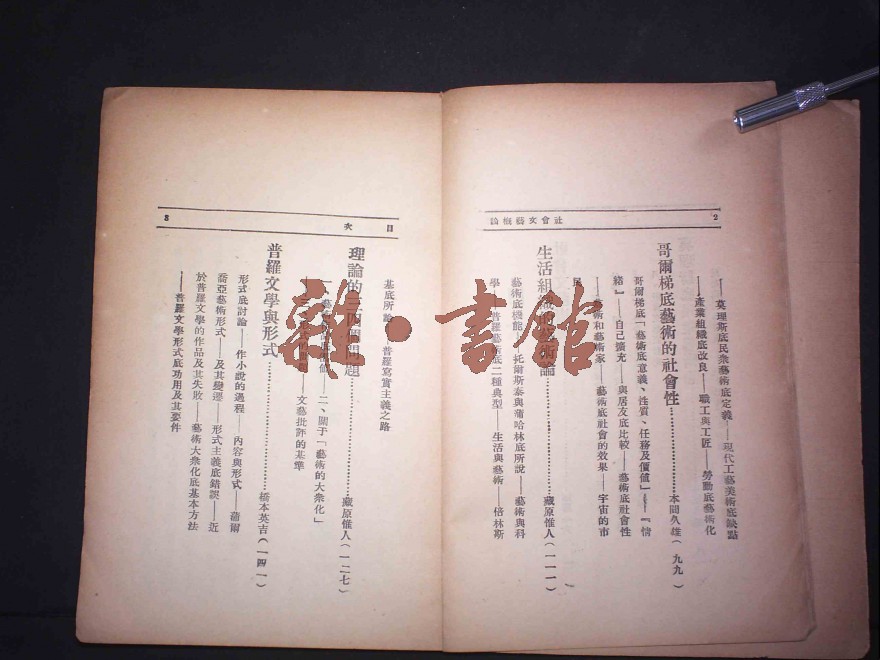 2
社會文藝概論
——莫理斯底民衆藝術底定義——現代工藝美術底缺點
——產業組織底改良——職工與工匠——勞動底藝術化
哥爾梯底藝術的社會性…………本間久雄(九九)
哥爾梯底「藝術底意義、性質、任務及價値」——『情
緒』——自己擴充——與居友底比較——藝術底社會性
——藝術和藝術家——藝術底社會的效果——宇宙的市
民
生活組織 藝術論…………藏原惟人(一一一)
藝術底機能——托爾斯泰與蒲哈林底所說——藝術與科
學——普羅藝術底二種典型——生活與藝術——倍林斯
目次
3
基底所論——普羅寫實主義之路
理論的三四個問題…………藏原惟人(一二七)
一、藝術 價値——二、關于「藝術的大衆化」
——三、形式 ——文藝批評的基準
普羅文學與形式…………橋本英吉(一四一)
形式底討論——作小說的過程——內容與形式——蒲爾
喬亞藝術形式——及其變遷——形式主義底錯誤——近
於普羅文學的作品及其失敗——藝術大衆化底基本方法
——普羅文學形式底功用及其要件
雜·書館